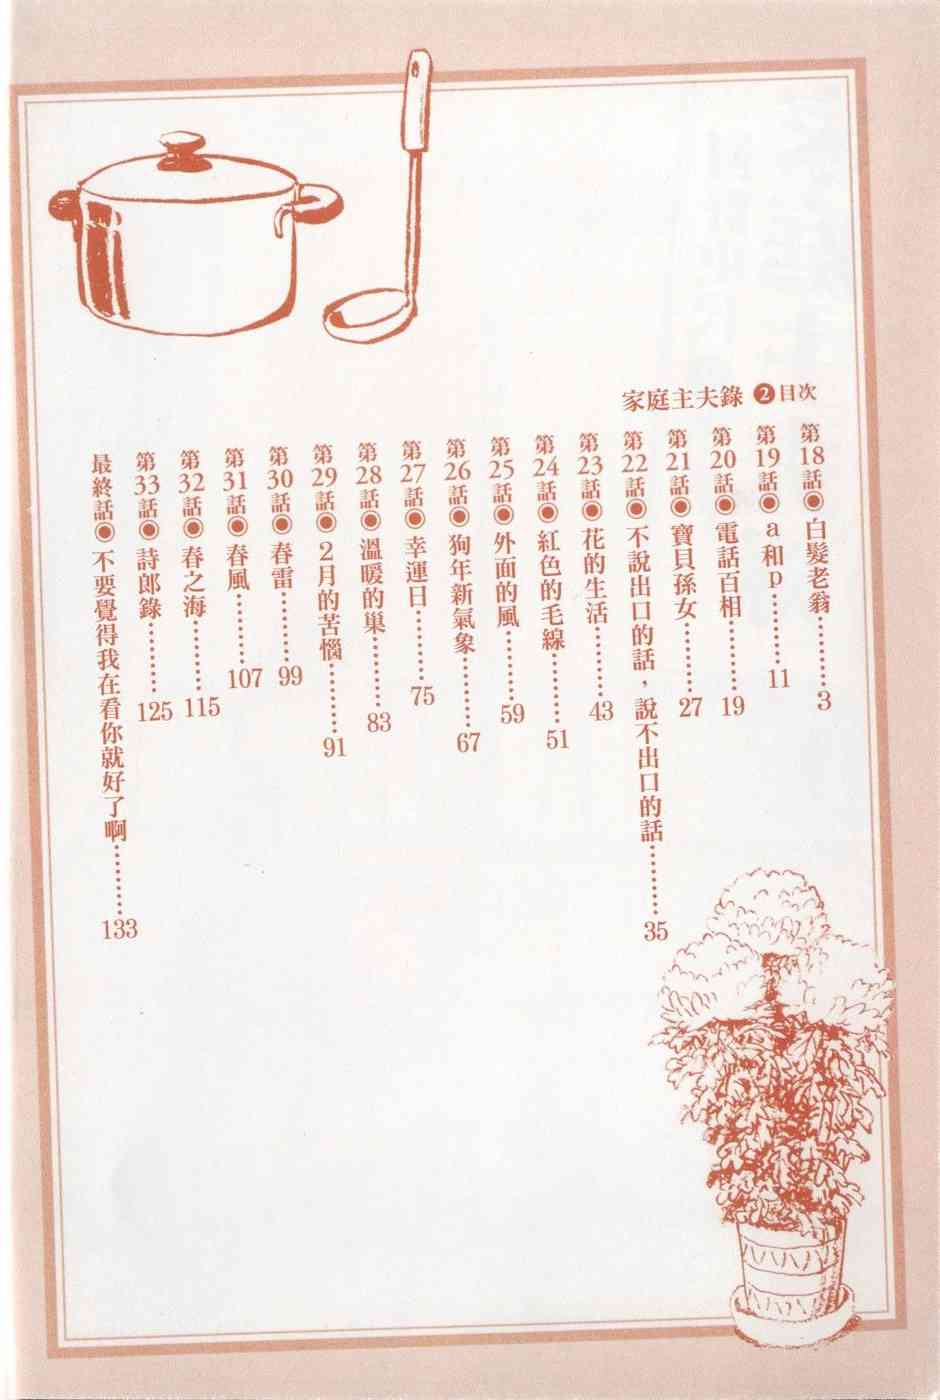 家庭主夫錄 ❷ 目次
第18話◉白髮老翁………3
第19話◉a和p………11
第20話◉電話百相………19
第21話◉寶貝孫女………27
第22話◉不說出口的話，說不出口的話………35
第23話◉花的生活………43
第24話◉紅色的毛線………51
第25話◉外面的風………59
第26話◉狗年新氣象………67
第27話◉幸運日………75
第28話◉溫暖的巢………83
第29話◉2月的苦惱………91
第30話◉春雷………99
第31話◉春風………107
第32話◉春之海………115
第33話◉詩郎錄………125
最終話◉不要覺得我在看你就好了啊………133